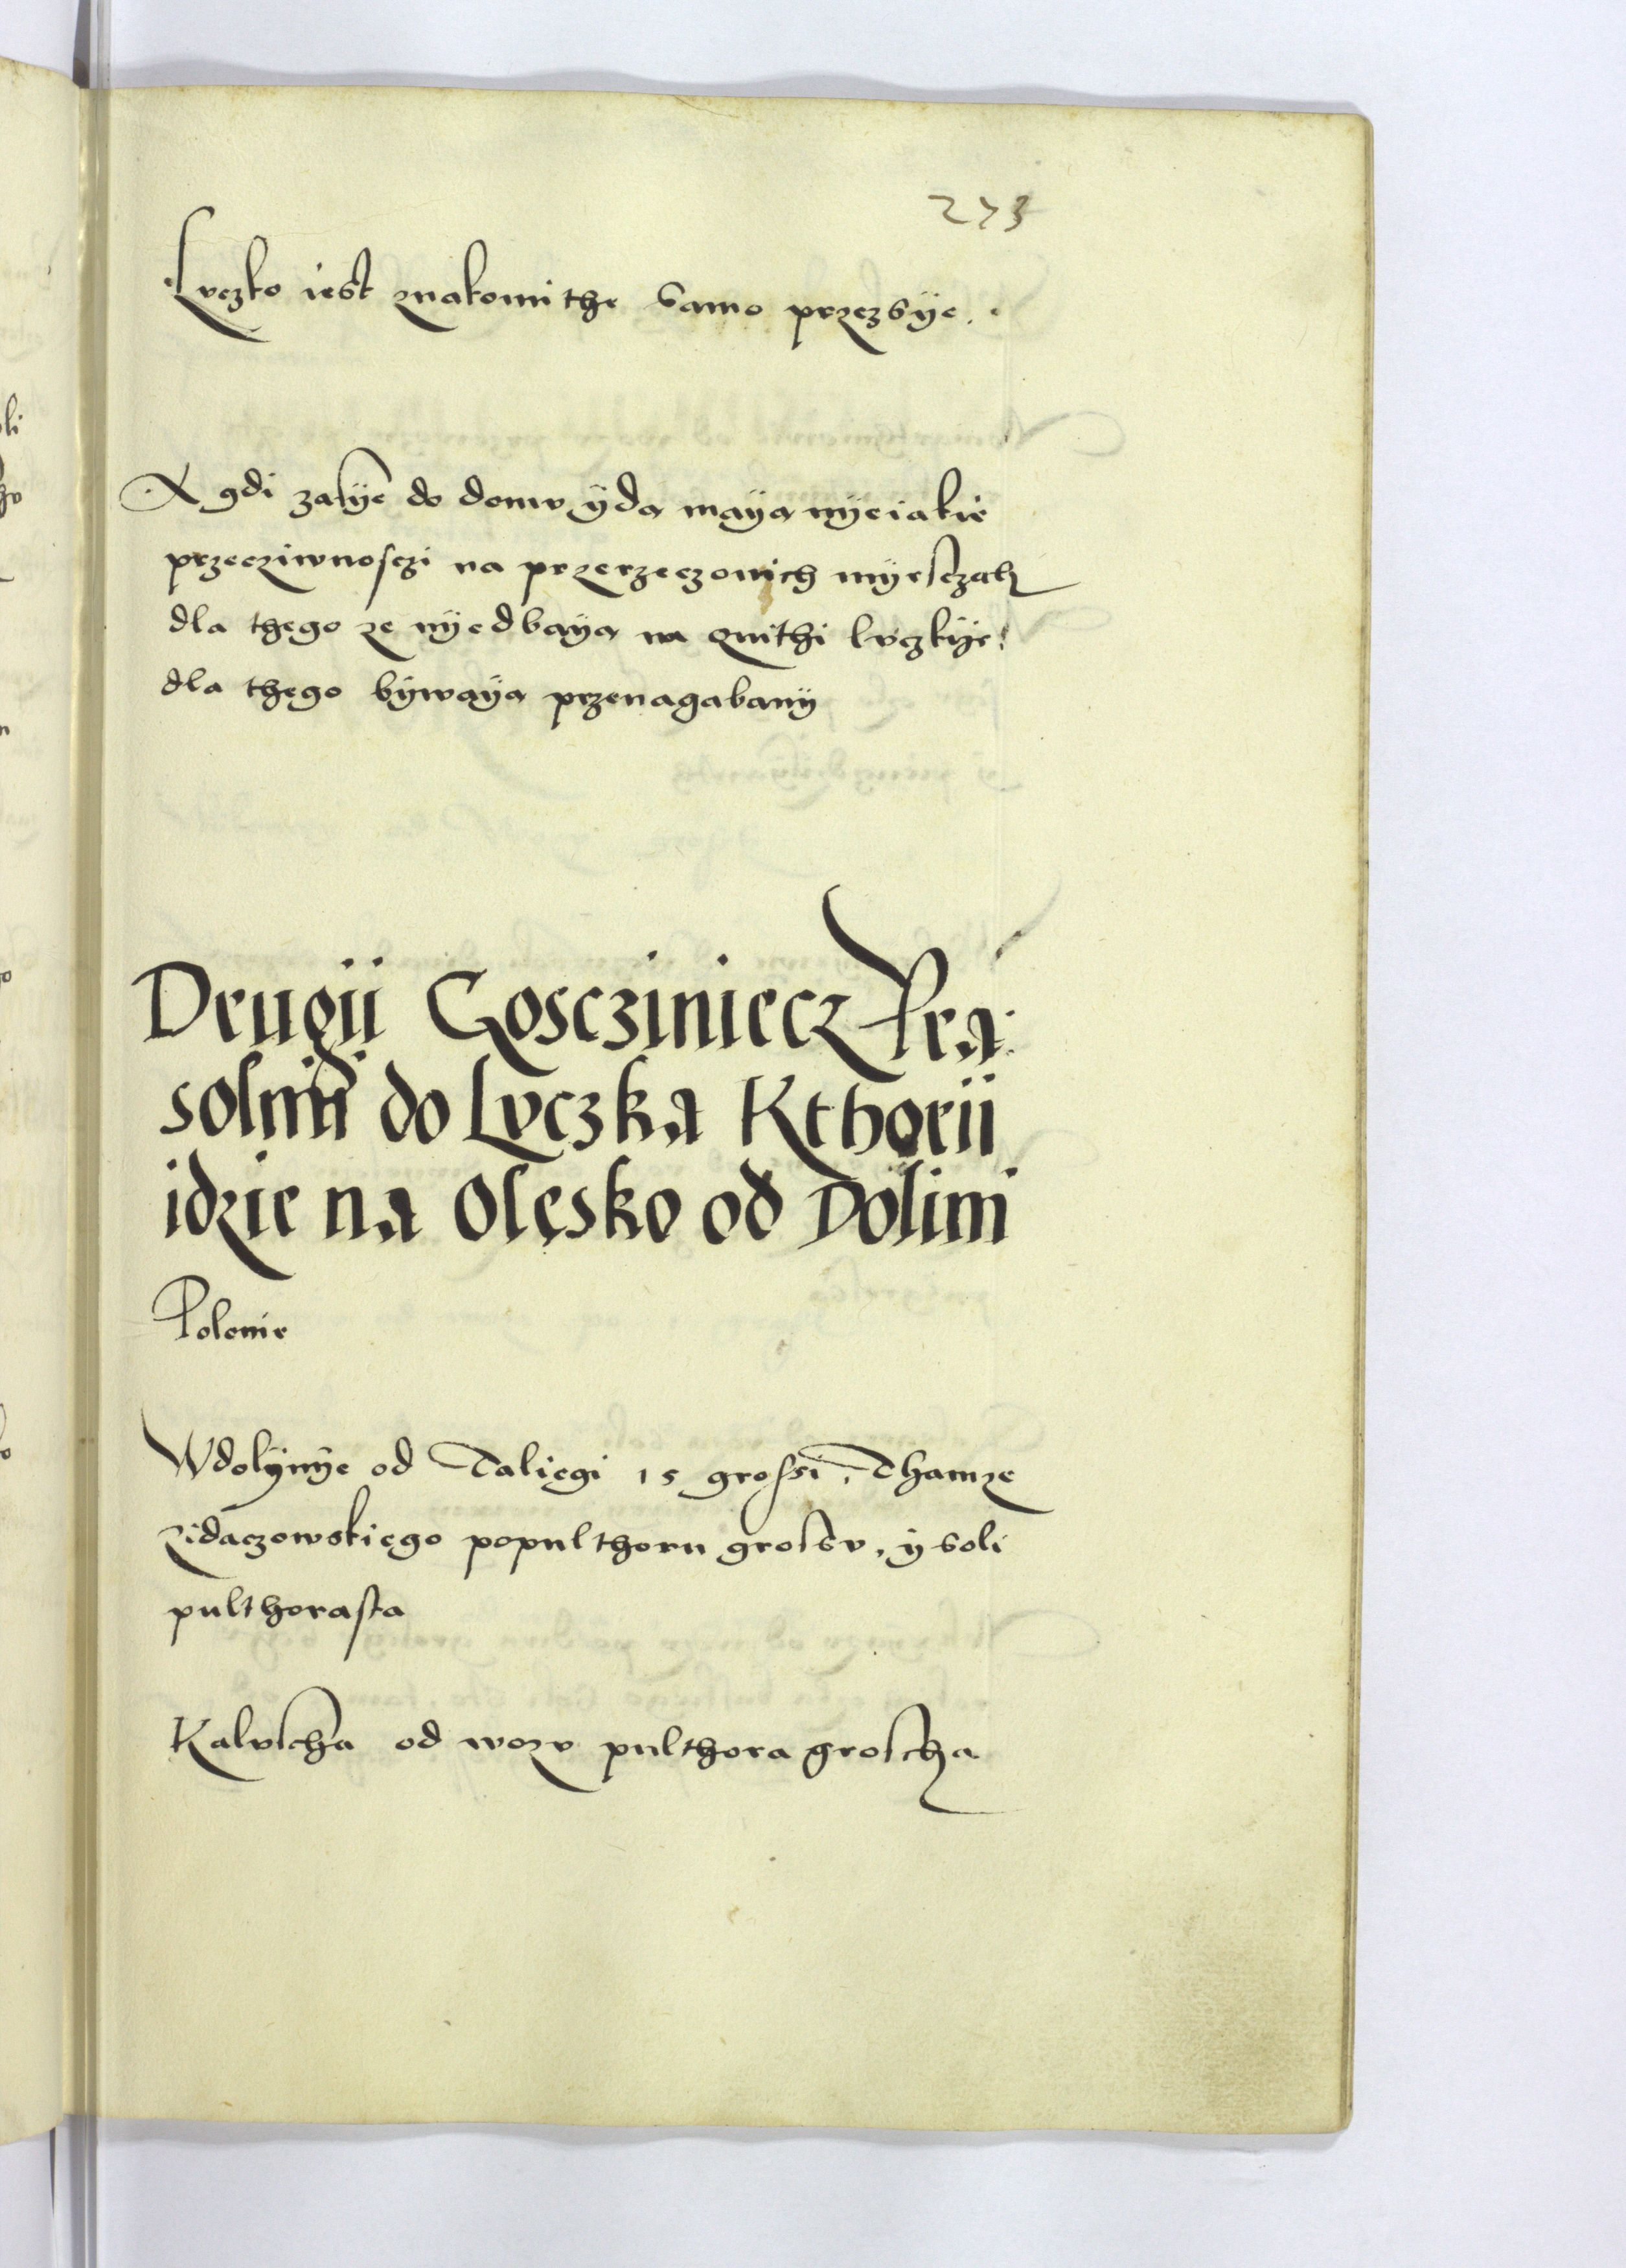 273
Lvczko iest znakomithe samo przezsÿe.
A gdi zasÿe do domv ÿda maÿa nÿeiakie
przecziwnosczi na przerzeczonich mÿesczah
dla thego ze nÿedbaÿa na qnithi lvczkÿe
dla thego bÿwaÿa przenagabanÿ
Drugii Goscziniecz Pra
solni do Lvczka Kthorii
idzie na Olesko od Dolini
Polonie
W dolÿnÿe od Taliegi 15 grossi, Thamze
zidaczowskiego populthoru grossv, ÿ soli
pulthorasta
Kalvscha od wozv pulthora groscha